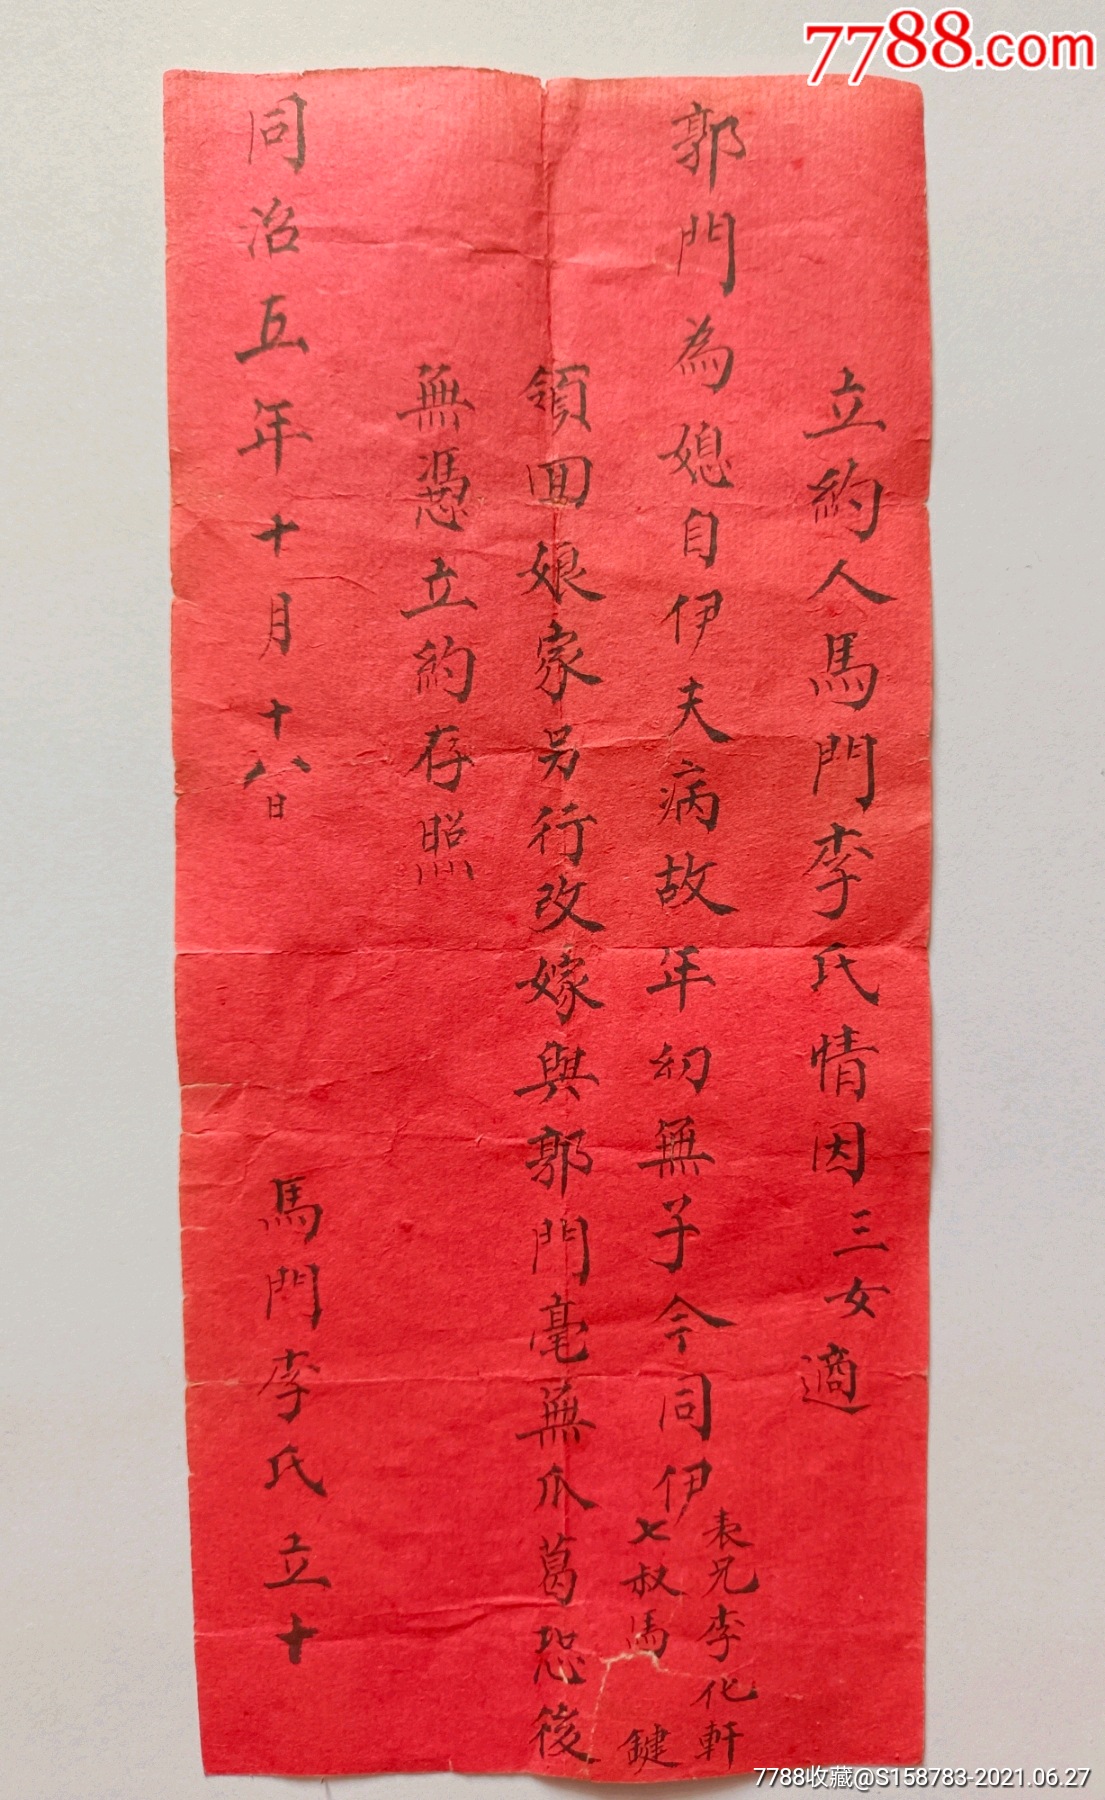 7788.com
立約人馬門李氏情因三女適
郭門為媳自伊夫病故年幼無子今同伊表兄李化軒七叔馬鍵
領回娘家另行改嫁與郭門毫無瓜葛恐後
無憑立約存照
同治五年十月十八日
馬門李氏立十
7788收藏@S158783-2021.06.27